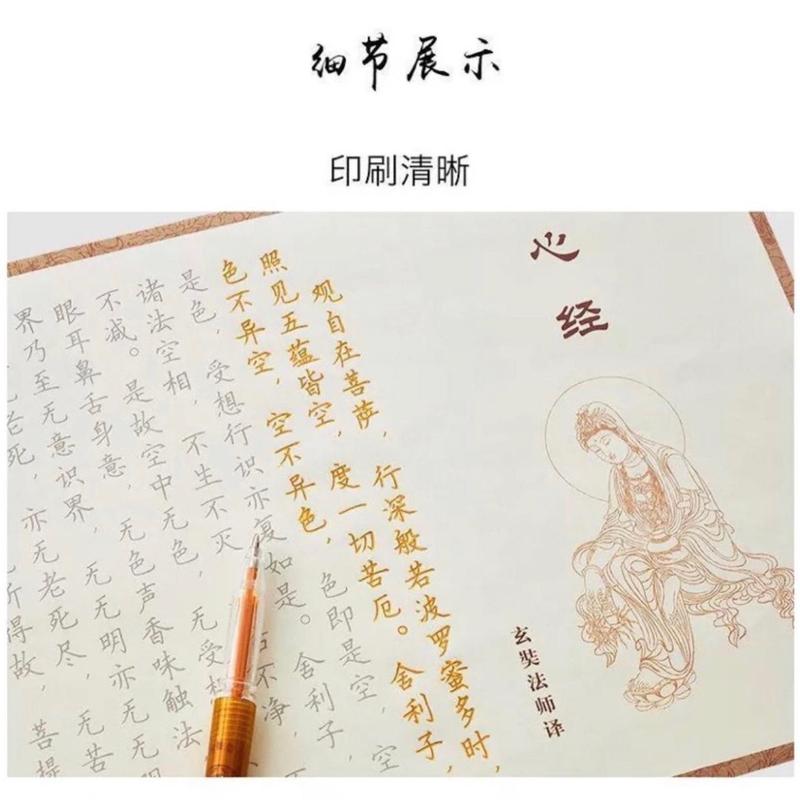 细节展示
印刷清晰
心经
观自在菩萨，行深般若波罗蜜多时，
照见五蕴皆空，度一切苦厄。舍利子，
色不异空，空不异色，色即是空，空
是色，受想行识亦复如是。舍利子
诸法空相，不生不灭，不净，
不减。是故空中无色，无受
眼耳鼻舌身意，无色声香味触法
界乃至无意识界，无无明亦无无明
老死，亦无老死尽，无苦
所得故，菩提
玄奘法师译